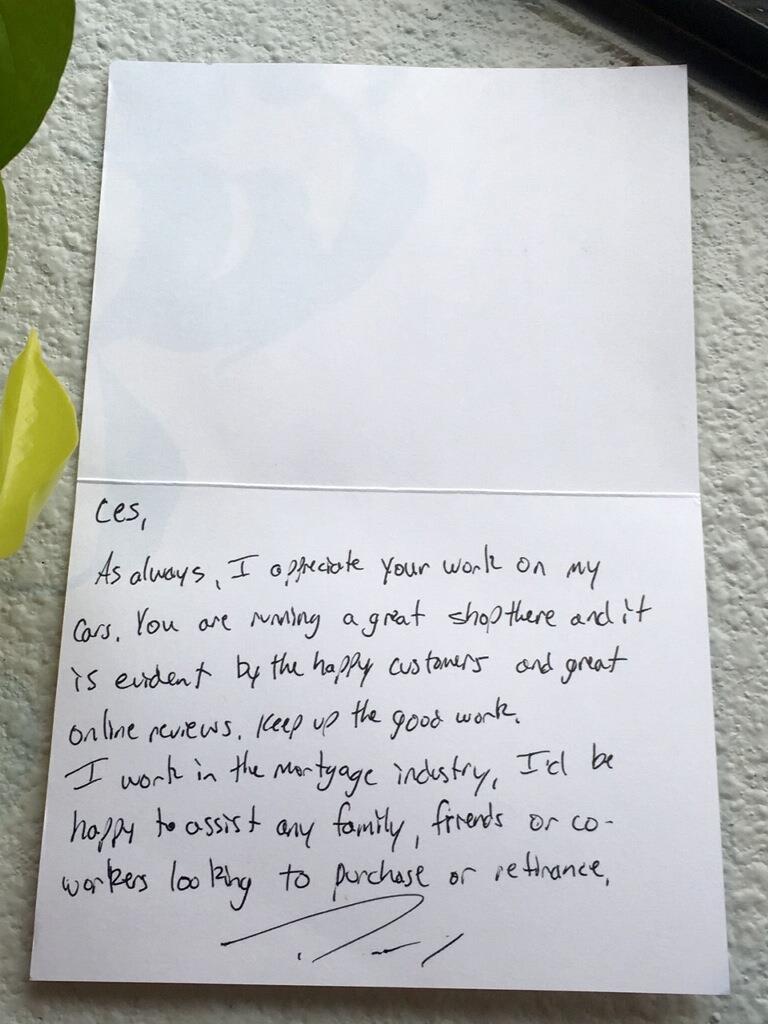 Ces,
As always, I appreciate your work on my
cars. You are running a great shop there and it
is evident by the happy customers and great
online reviews. Keep up the good work.
I work in the mortgage industry, I'd be
happy to assist any family, friends or co-
workers looking to purchase or refinance.